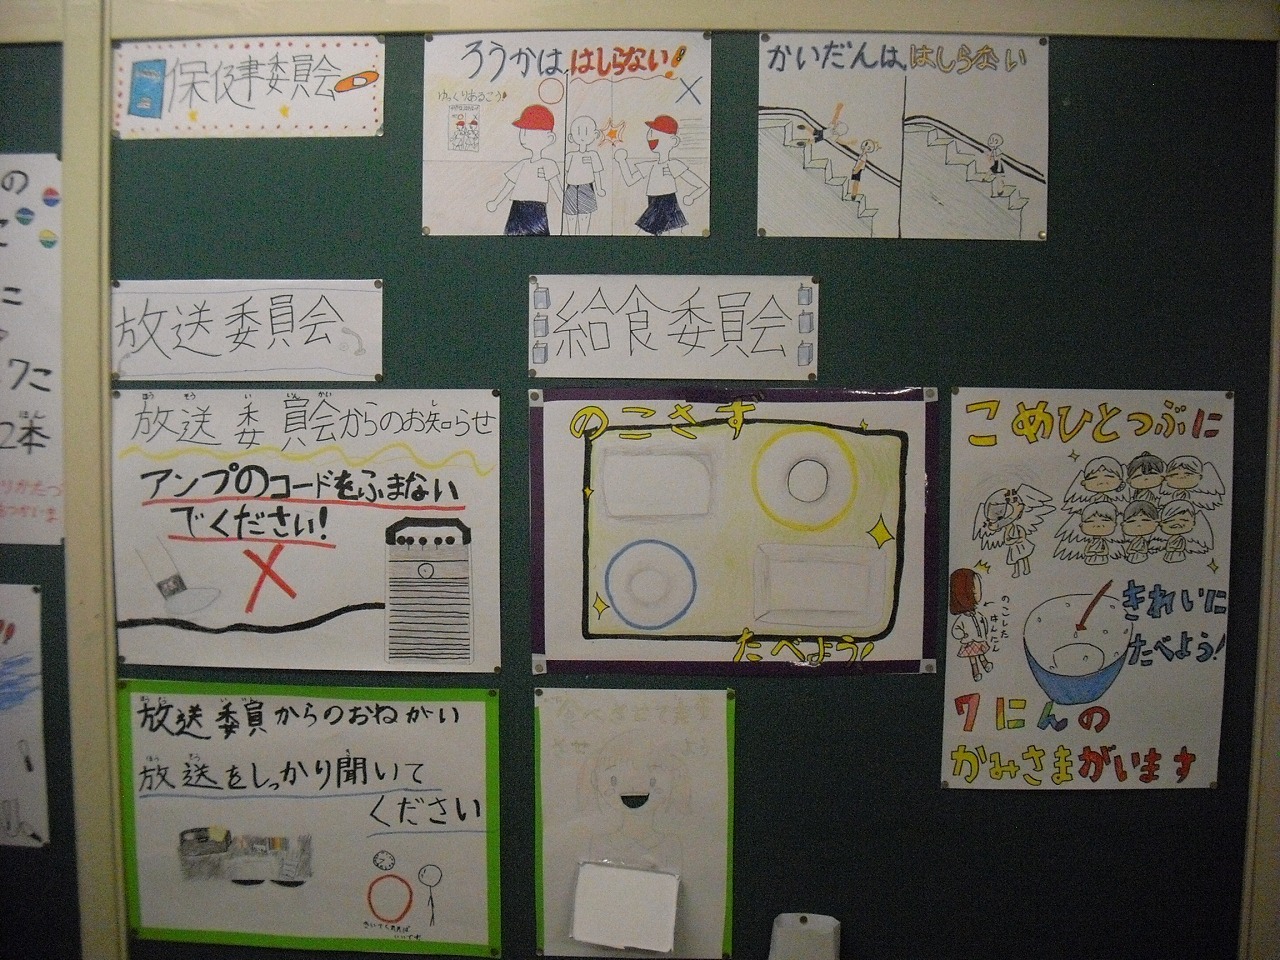 保健委員会
ろうかは、はしらない!
ゆっくりあるこう!
かいだんは、はしらない
放送委員会
給食委員会
放送委員会からのお知らせ
ほう そう い いん かい し
アンプのコードをふまない
でください!
のこさず
たべよう!
こめひとつぶに
のこした
はんにん
きれいに
たべよう!
7にんの
かみさまがいます
放送委員からのおねがい
放送をしっかり聞いて
ください
の
こ
に
7こ
2本
ほん